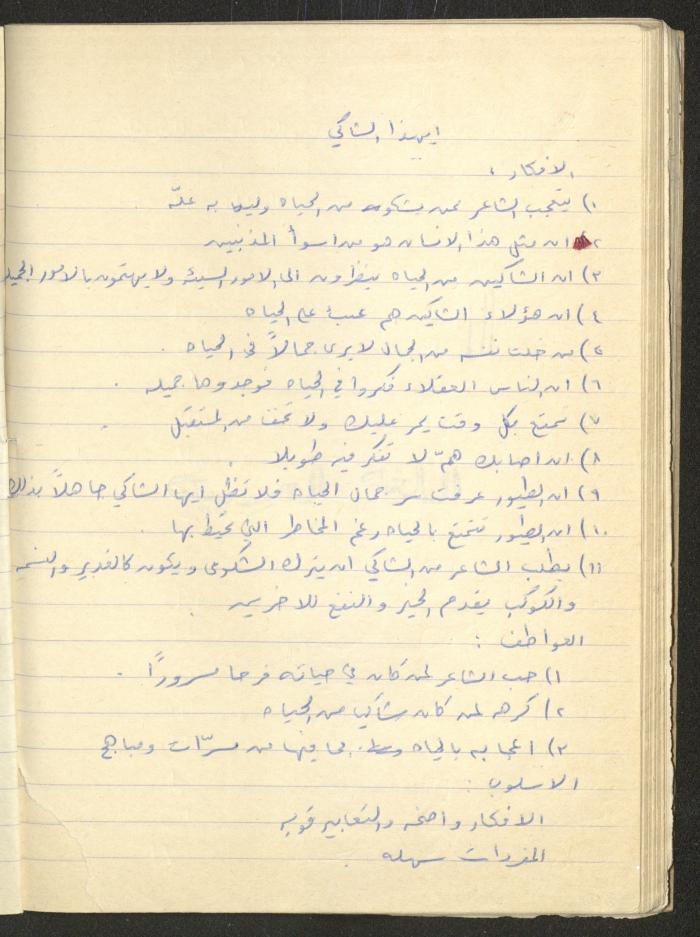 ايهذا الشاكي
الافكار :
١) يتعجب الشاعر ممن يشكو من الحياه وليس به علّه
٢) ان مثل هذا الانسان هو من اسوأ المذنبين
٣) ان الشاكين من الحياه ينظرون الى الامور السيئه ولا يهتمون بالامور الجميله
٤) ان هؤلاء الشاكين هم عبء على الحياه
٥) من خلت نفسه من الجمال لا يرى جمالاً في الحياه .
٦) ان الناس العقلاء فكروا في الحياه فوجدوها جميله .
٧) تمتع بكل وقت يمر عليك ولا تخف من المستقبل .
٨) ان اصابك همّ لا تفكر فيه طويلا .
٩) ان الطيور عرفت سر جمال الحياه فلا تظل ايها الشاكي جاهلاً بذلك
١٠) ان الطيور تتمتع بالحياه رغم المخاطر التي تحيط بها
١١) يطلب الشاعر من الشاكي ان يترك الشكوى ويكون كالغدير والنسمه
والكوكب يقدم الخير والنفع للاخرين
العواطف :
١) حب الشاعر لمن كان في حياته فرحا مسروراً .
٢) كرهه لمن كان شاكيا من الحياه
٣) اعجابه بالحياه بما فيها من مسرّات ومباهج
الاسلوب :
الافكار واضحه والتعابير قويه
المفردات سهله .